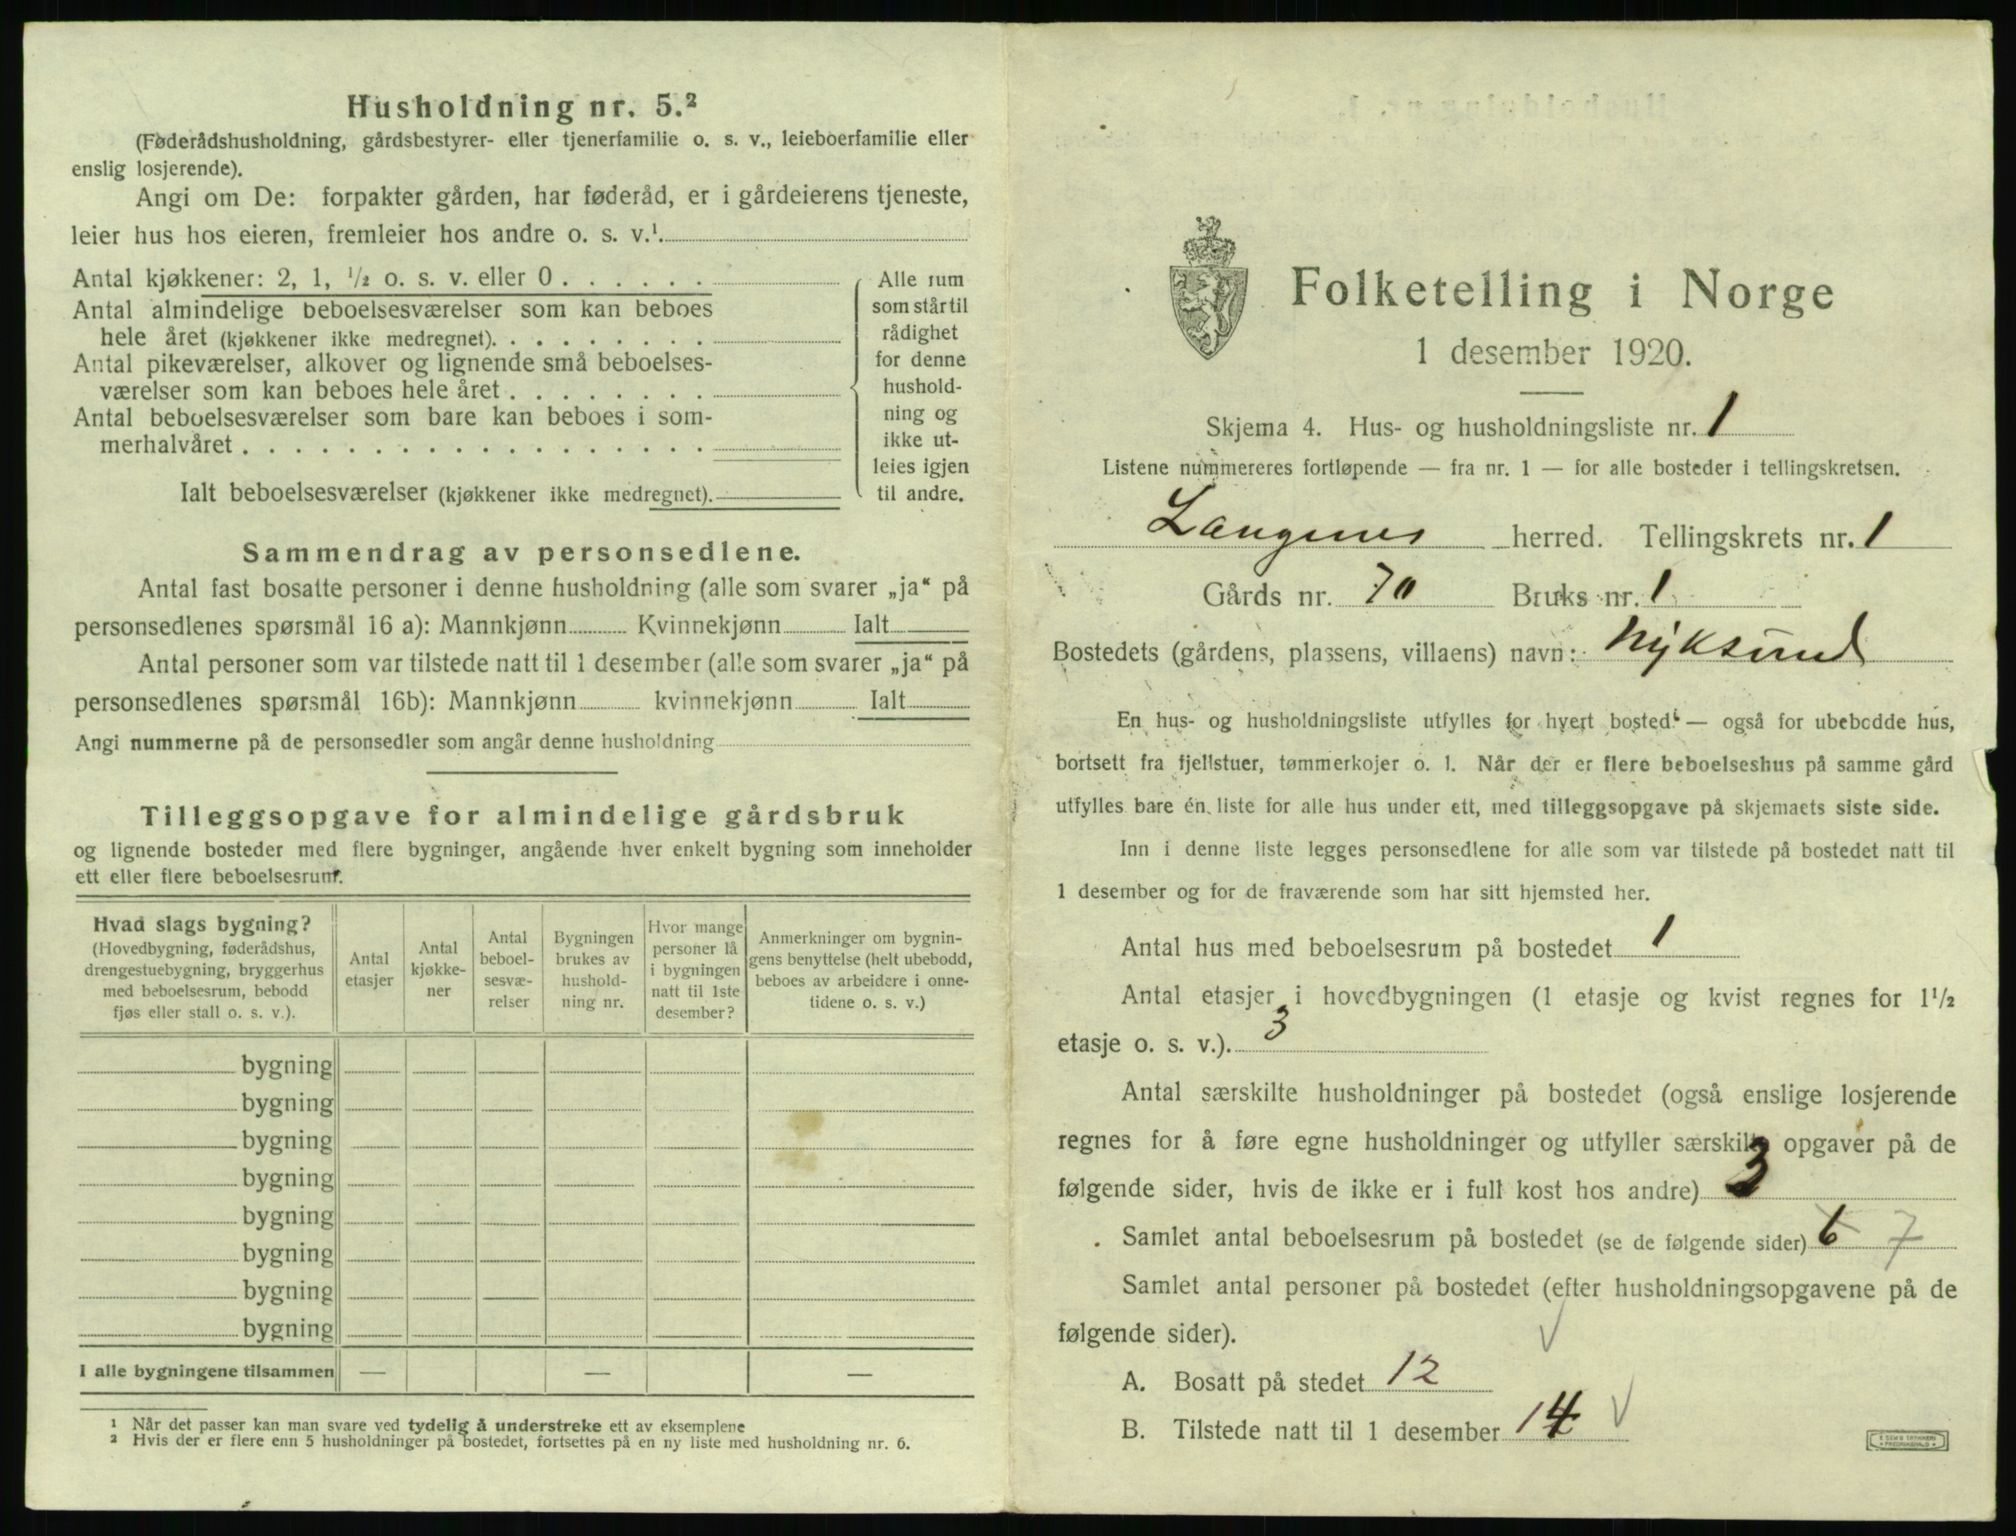 Husholdning nr. 5.²
(Føderådshusholdning, gårdsbestyrer- eller tjenerfamilie o. s. v., leieboerfamilie eller
enslig losjerende).
Angi om De: forpakter gården, har føderåd, er i gårdeierens tjeneste,
leier hus hos eieren, fremleier hos andre o. s. v.¹.
Antal kjøkkener: 2, 1, ¹/₂ o. s. v. eller 0 . . . . . .
Antal almindelige beboelsesværelser som kan beboes
hele året (kjøkkener ikke medregnet). . . . . . . . .
Antal pikeværelser, alkover og lignende små beboelses-
værelser som kan beboes hele året . . . . . . . .
Antal beboelsesværelser som bare kan beboes i som-
merhalvåret . . . . . . . . . . . . . . . . . .
Ialt beboelsesværelser (kjøkkener ikke medregnet).
Alle rum
som står til
rådighet
for denne
hushold-
ning og
ikke ut-
leies igjen
til andre.
Sammendrag av personsedlene.
Antal fast bosatte personer i denne husholdning (alle som svarer „ja“ på
personsedlenes spørsmål 16 a): Mannkjønn Kvinnekjønn Ialt
Antal personer som var tilstede natt til 1 desember (alle som svarer „ja“ på
personsedlenes spørsmål 16b): Mannkjønn kvinnekjønn Ialt
Angi nummerne på de personsedler som angår denne husholdning
Tilleggsopgave for almindelige gårdsbruk
og lignende bosteder med flere bygninger, angående hver enkelt bygning som inneholder
ett eller flere beboelsesrum.
Hvad slags bygning?
(Hovedbygning, føderådshus,
drengestuebygning, bryggerhus
med beboelsesrum, bebodd
fjøs eller stall o. s. v.).
Antal
etasjer
Antal
kjøkke-
ner
Antal
beboel-
sesvæ-
relser
Bygningen
brukes av
hushold-
ning nr.
Hvor mange
personer lå
i bygningen
natt til 1ste
desember?
Anmerkninger om bygnin-
gens benyttelse (helt ubebodd,
beboes av arbeidere i onne-
tidene o. s. v.)
bygning
bygning
bygning
bygning
bygning
bygning
bygning
bygning
I alle bygningene tilsammen — — —
¹ Når det passer kan man svare ved tydelig å understreke ett av eksemplene
² Hvis der er flere enn 5 husholdninger på bostedet, fortsettes på en ny liste med husholdning nr. 6.
Folketelling i Norge
1 desember 1920.
Skjema 4. Hus- og husholdningsliste nr. 1
Listene nummereres fortløpende — fra nr. 1 — for alle bosteder i tellingskretsen.
Langenes herred. Tellingskrets nr. 1
Gårds nr. 70 Bruks nr. 1
Bostedets (gårdens, plassens, villaens) navn: Nyksund
En hus- og husholdningsliste utfylles for hvert bosted — også for ubebodde hus,
bortsett fra fjellstuer, tømmerkojer o. l. Når der er flere beboelseshus på samme gård
utfylles bare én liste for alle hus under ett, med tilleggsopgave på skjemaets siste side.
Inn i denne liste legges personsedlene for alle som var tilstede på bostedet natt til
1 desember og for de fraværende som har sitt hjemsted her.
Antal hus med beboelsesrum på bostedet 1
Antal etasjer i hovedbygningen (1 etasje og kvist regnes for 1¹/₂
etasje o. s. v.). 3
Antal særskilte husholdninger på bostedet (også enslige losjerende
regnes for å føre egne husholdninger og utfyller særskilte opgaver på de
følgende sider, hvis de ikke er i full kost hos andre) 3
Samlet antal beboelsesrum på bostedet (se de følgende sider) 6 7
Samlet antal personer på bostedet (efter husholdningsopgavene på de
følgende sider).
A. Bosatt på stedet 12
B. Tilstede natt til 1 desember 14